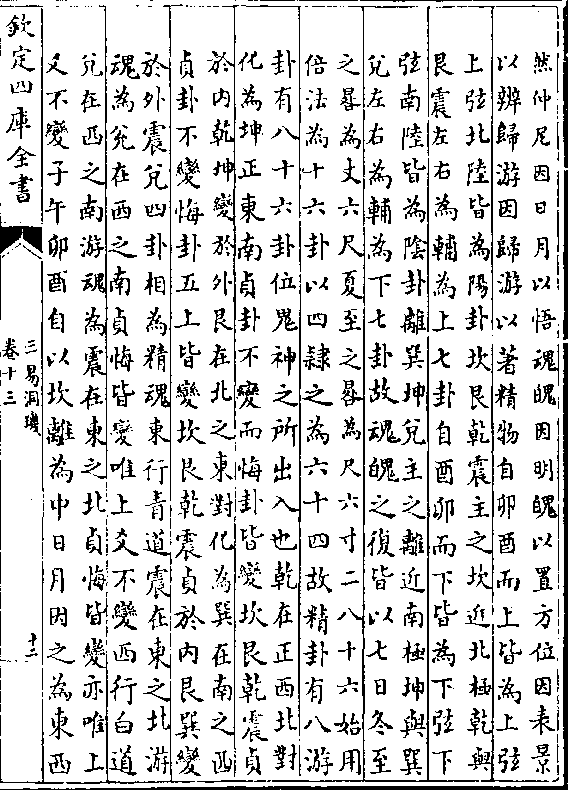 然仲尼因日月以悟魂魄因明魄以置方位因表景
以辨歸游因歸游以著精物自卯酉而上皆為上弦
上弦北陸皆為陽卦坎艮乾震主之坎近北極乾與
艮震左右為輔為上七卦自酉卯而下皆為下弦下
弦南陸皆為陰卦離巽坤兌主之離近南極坤與巽
兌左右為輔為下七卦故魂魄之復皆以七日冬至
之晷為丈六尺夏至之晷為尺六寸二八十六始用
倍法為十六卦以四隸之為六十四故精卦有八游
卦有八十六卦位鬼神之所出入也乾在正西北對
化為坤正東南貞卦不變而悔卦皆變坎艮乾震貞
於內乾坤變於外艮在北之東對化為巽在南之西
貞卦不變悔卦五上皆變坎艮乾震貞於內艮巽變
於外震兌四卦相為精魂東行青道震在東之北游
魂為兌在西之南貞悔皆變唯上爻不變西行白道
兌在西之南游魂為震在東之北貞悔皆變亦唯上
爻不變子午卯酉自以坎離為中日月因之為東西
欽定四庫全書
三易洞璣
卷十三
十二